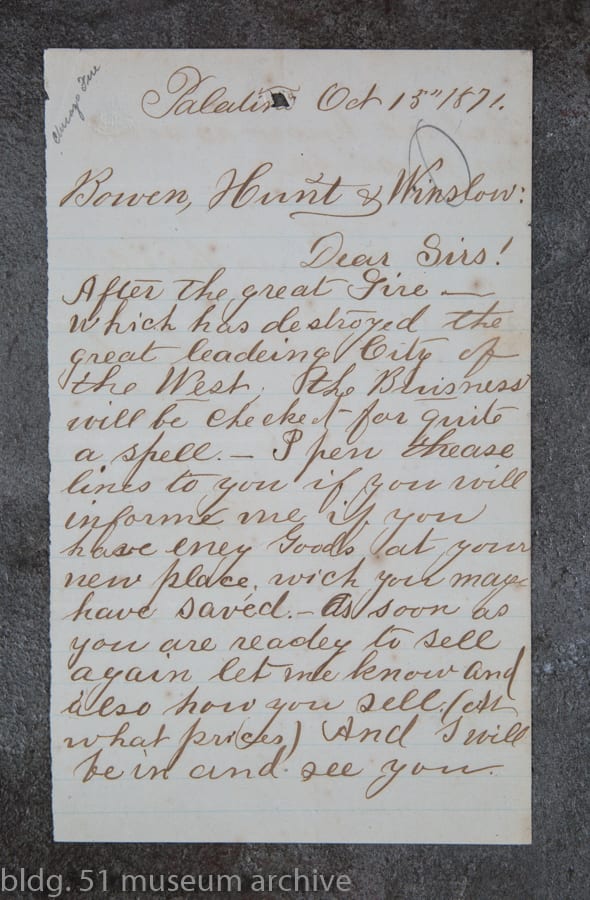 Chicago Fire
Palatine Oct 15" 1871.
Bowen, Hunt & Winslow:
Dear Sirs!
After the great Fire —
which has destroyed the
great leadeing City of
the West. the Bruisness
will be checked for quite
a spell. — I pen thease
lines to you if you will
informe me if you
have eney Goods at your
new place. wich you maye
have saved. — As soon as
you are readey to sell
again let me know and
also how you sell. (At
what prices) And I will
be in and see you.
bldg. 51 museum archive